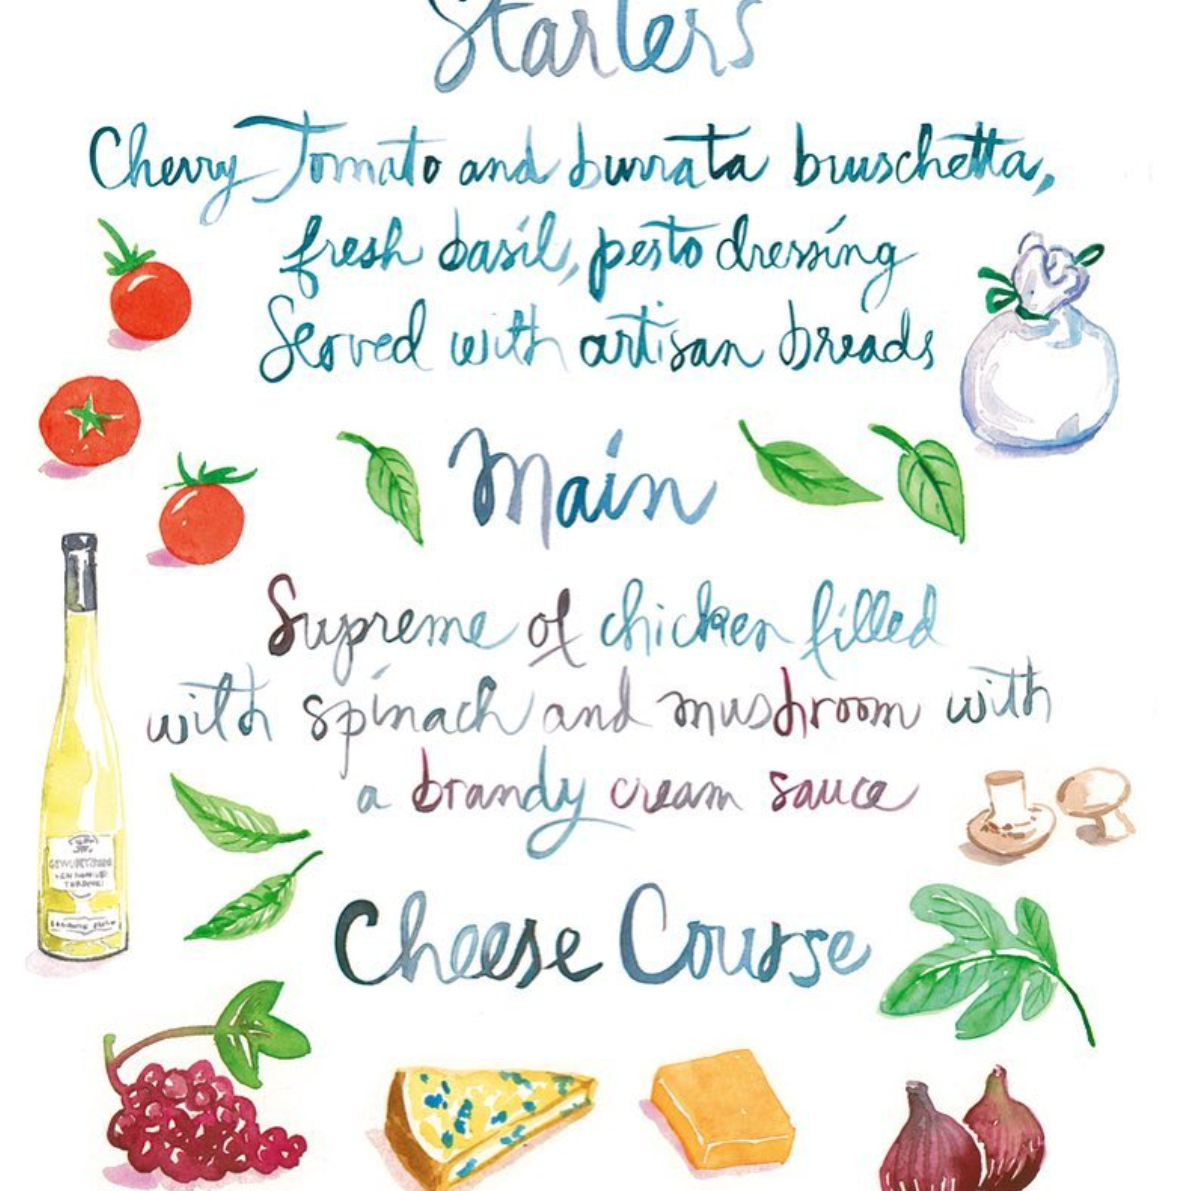 Starters
Cherry Tomato and burrata bruschetta,
fresh basil, pesto dressing
Served with artisan breads
Main
Supreme of chicken filled
with spinach and mushroom with
a brandy cream sauce
Cheese Course